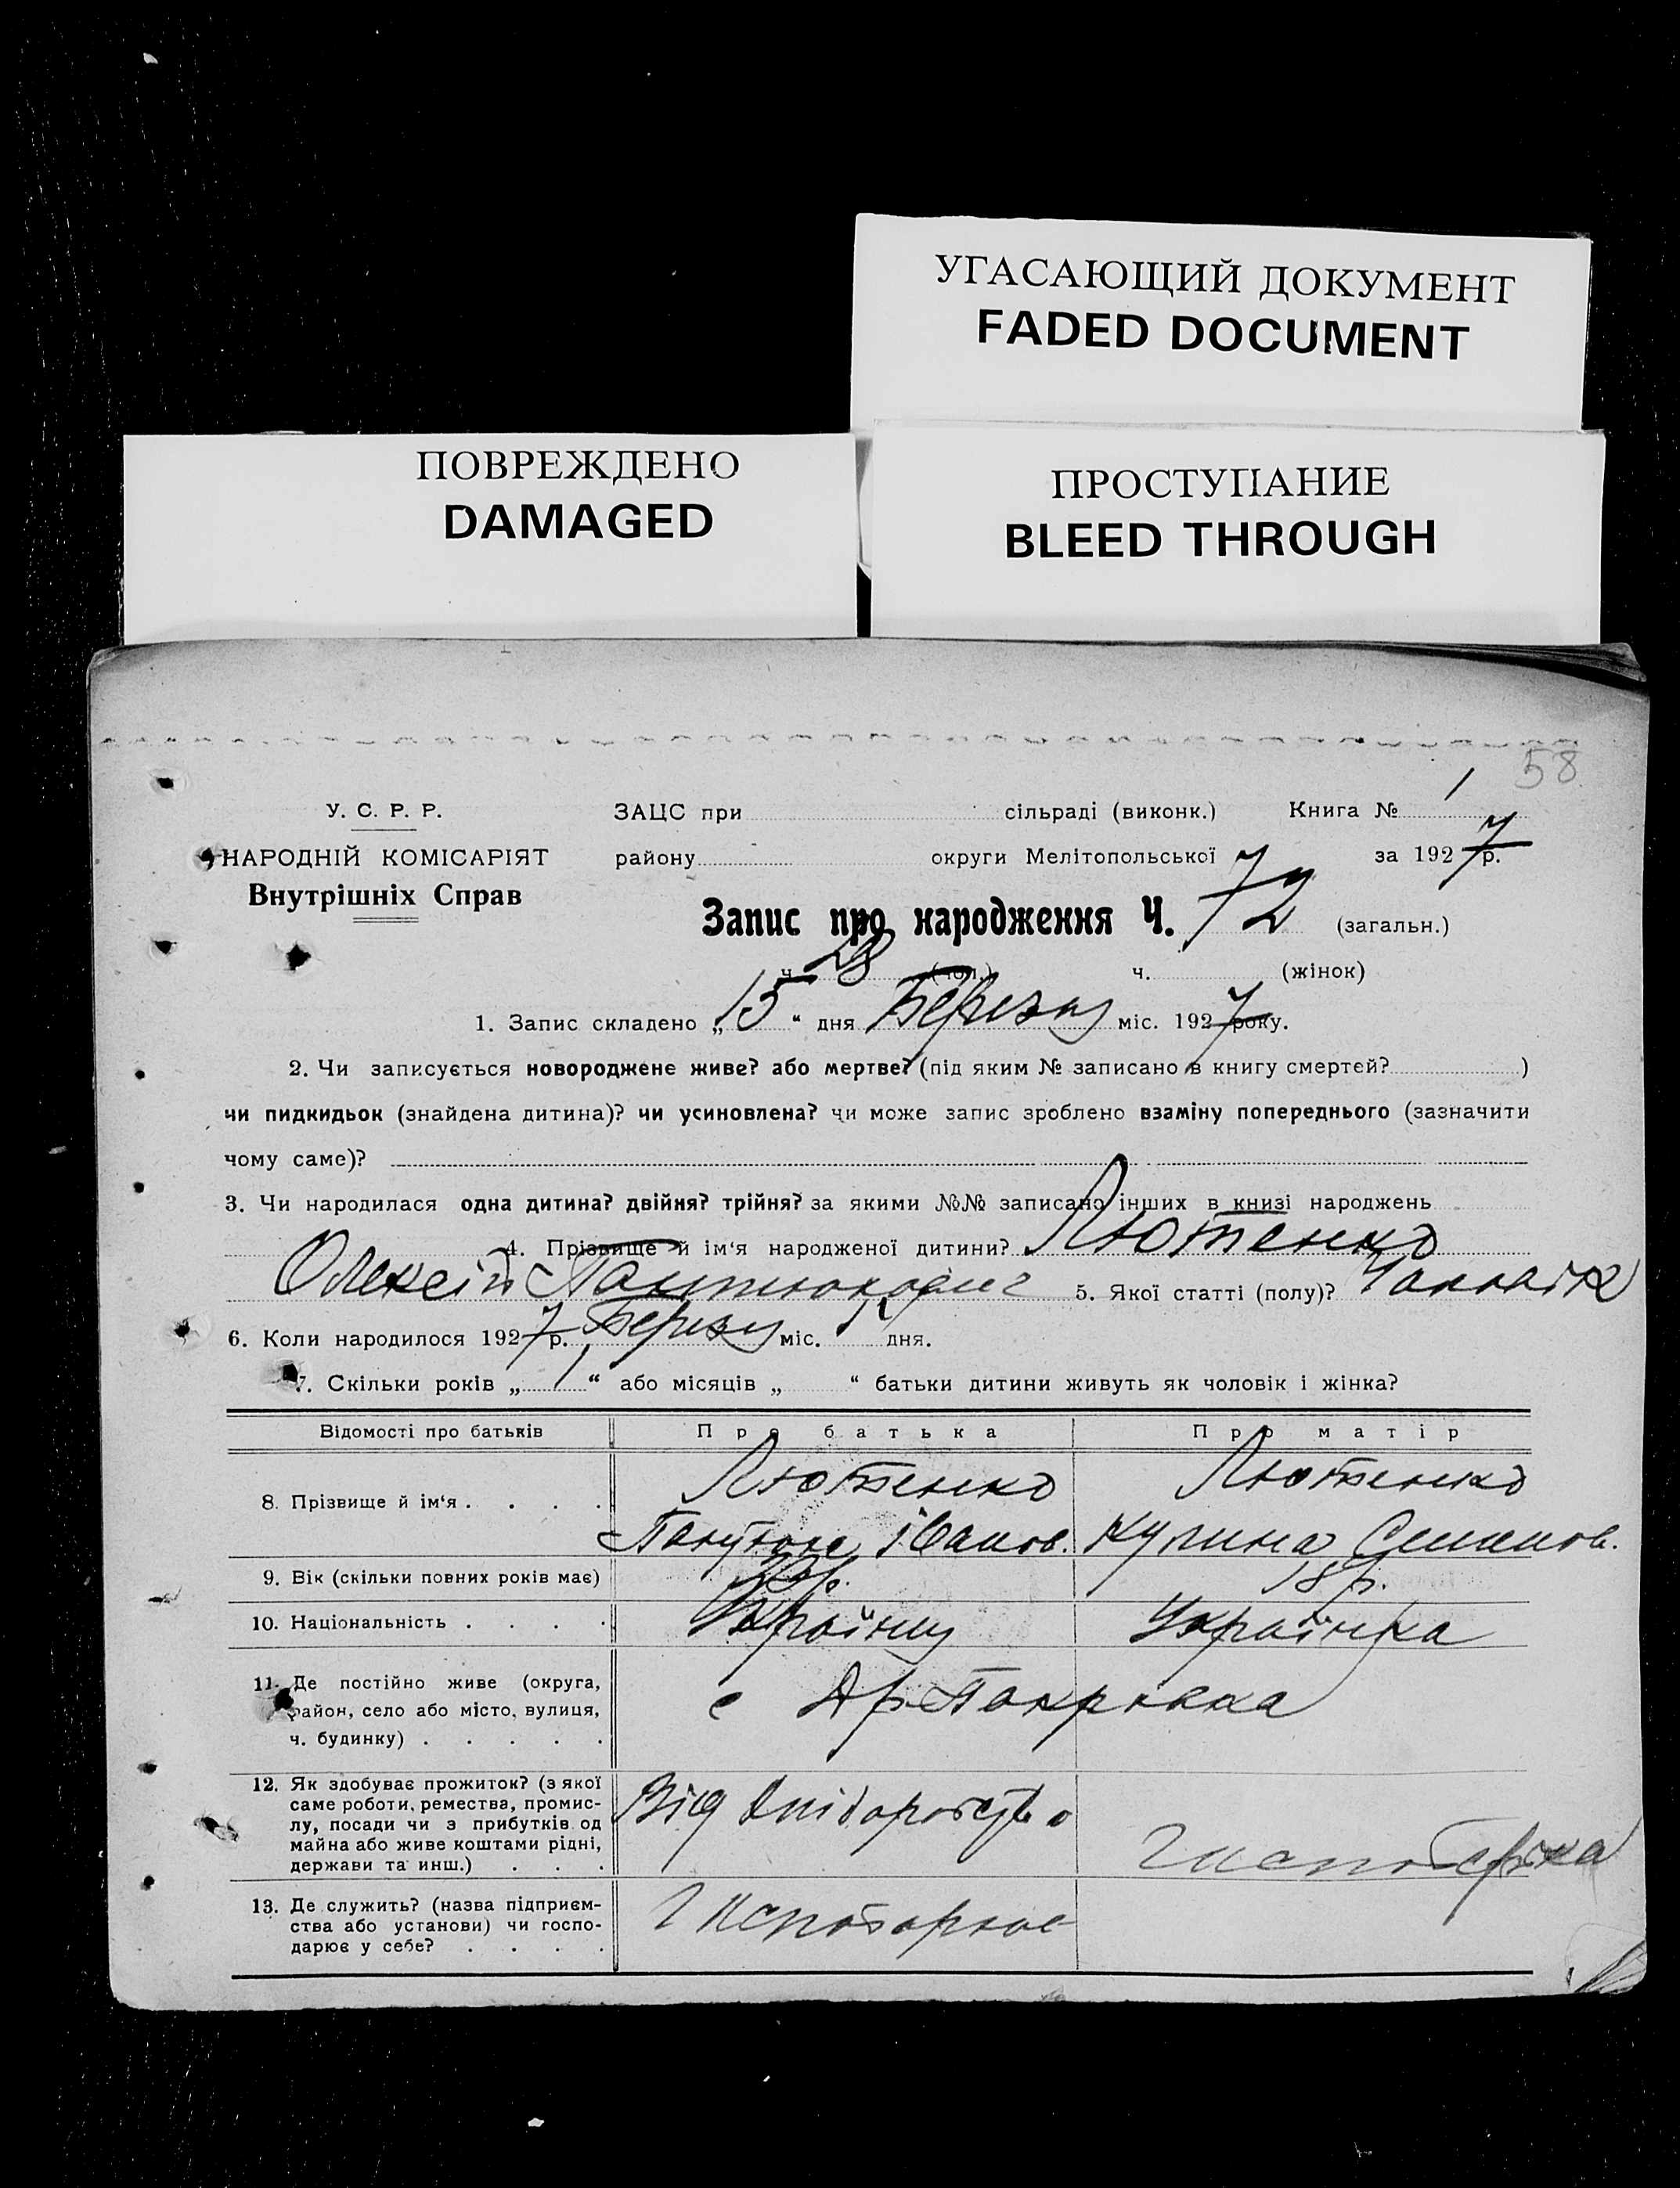 УГАСАЮЩИЙ ДОКУМЕНТ
FADED DOCUMENT
ПОВРЕЖДЕНО
DAMAGED
ПРОСТУПАНИЕ
BLEED THROUGH
58
У. С. Р. Р.
НАРОДНІЙ КОМІСАРІЯТ
Внутрішніх Справ
ЗАЦС при сільраді (виконк.) Книга № 1
району округи Мелітопольської за 1927 р.
Запис про народження Ч. 72 (загальн.)
ч. 28 (чол.) ч. (жінок)
1. Запис складено „15“ дня Березня міс. 1927 року.
2. Чи записується новороджене живе? або мертве? (під яким № записано в книгу смертей? )
чи пидкидьок (знайдена дитина)? чи усиновлена? чи може запис зроблено взаміну попереднього (зазначити
чому саме)?
3. Чи народилася одна дитина? двійня? трійня? за якими №№ записано інших в книзі народжень
4. Прізвище й ім‘я народженої дитини? Лютенко
Олексій 5. Якої статті (полу)? Чоловік
6. Коли народилося 1927 р. Березня міс. дня.
7. Скільки років „1“ або місяців „ “ батьки дитини живуть як чоловік і жінка?
Відомості про батьків Про батька Про матір
8. Прізвище й ім‘я . . . . Лютенко Лютенко
Іванов. Кулина Семенов.
9. Вік (скільки повних років має) 18 р.
10. Національність . . . . Українець Українка
11. Де постійно живе (округа,
район, село або місто, вулиця,
ч. будинку) . . . . .
с Покровка
12. Як здобуває прожиток? (з якої
саме роботи, ремества, промис-
лу, посади чи з прибутків од
майна або живе коштами рідні,
держави та инш.) . . .
Від хліборобства
13. Де служить? (назва підприєм-
ства або установи) чи госпо-
дарює у себе? . . . .